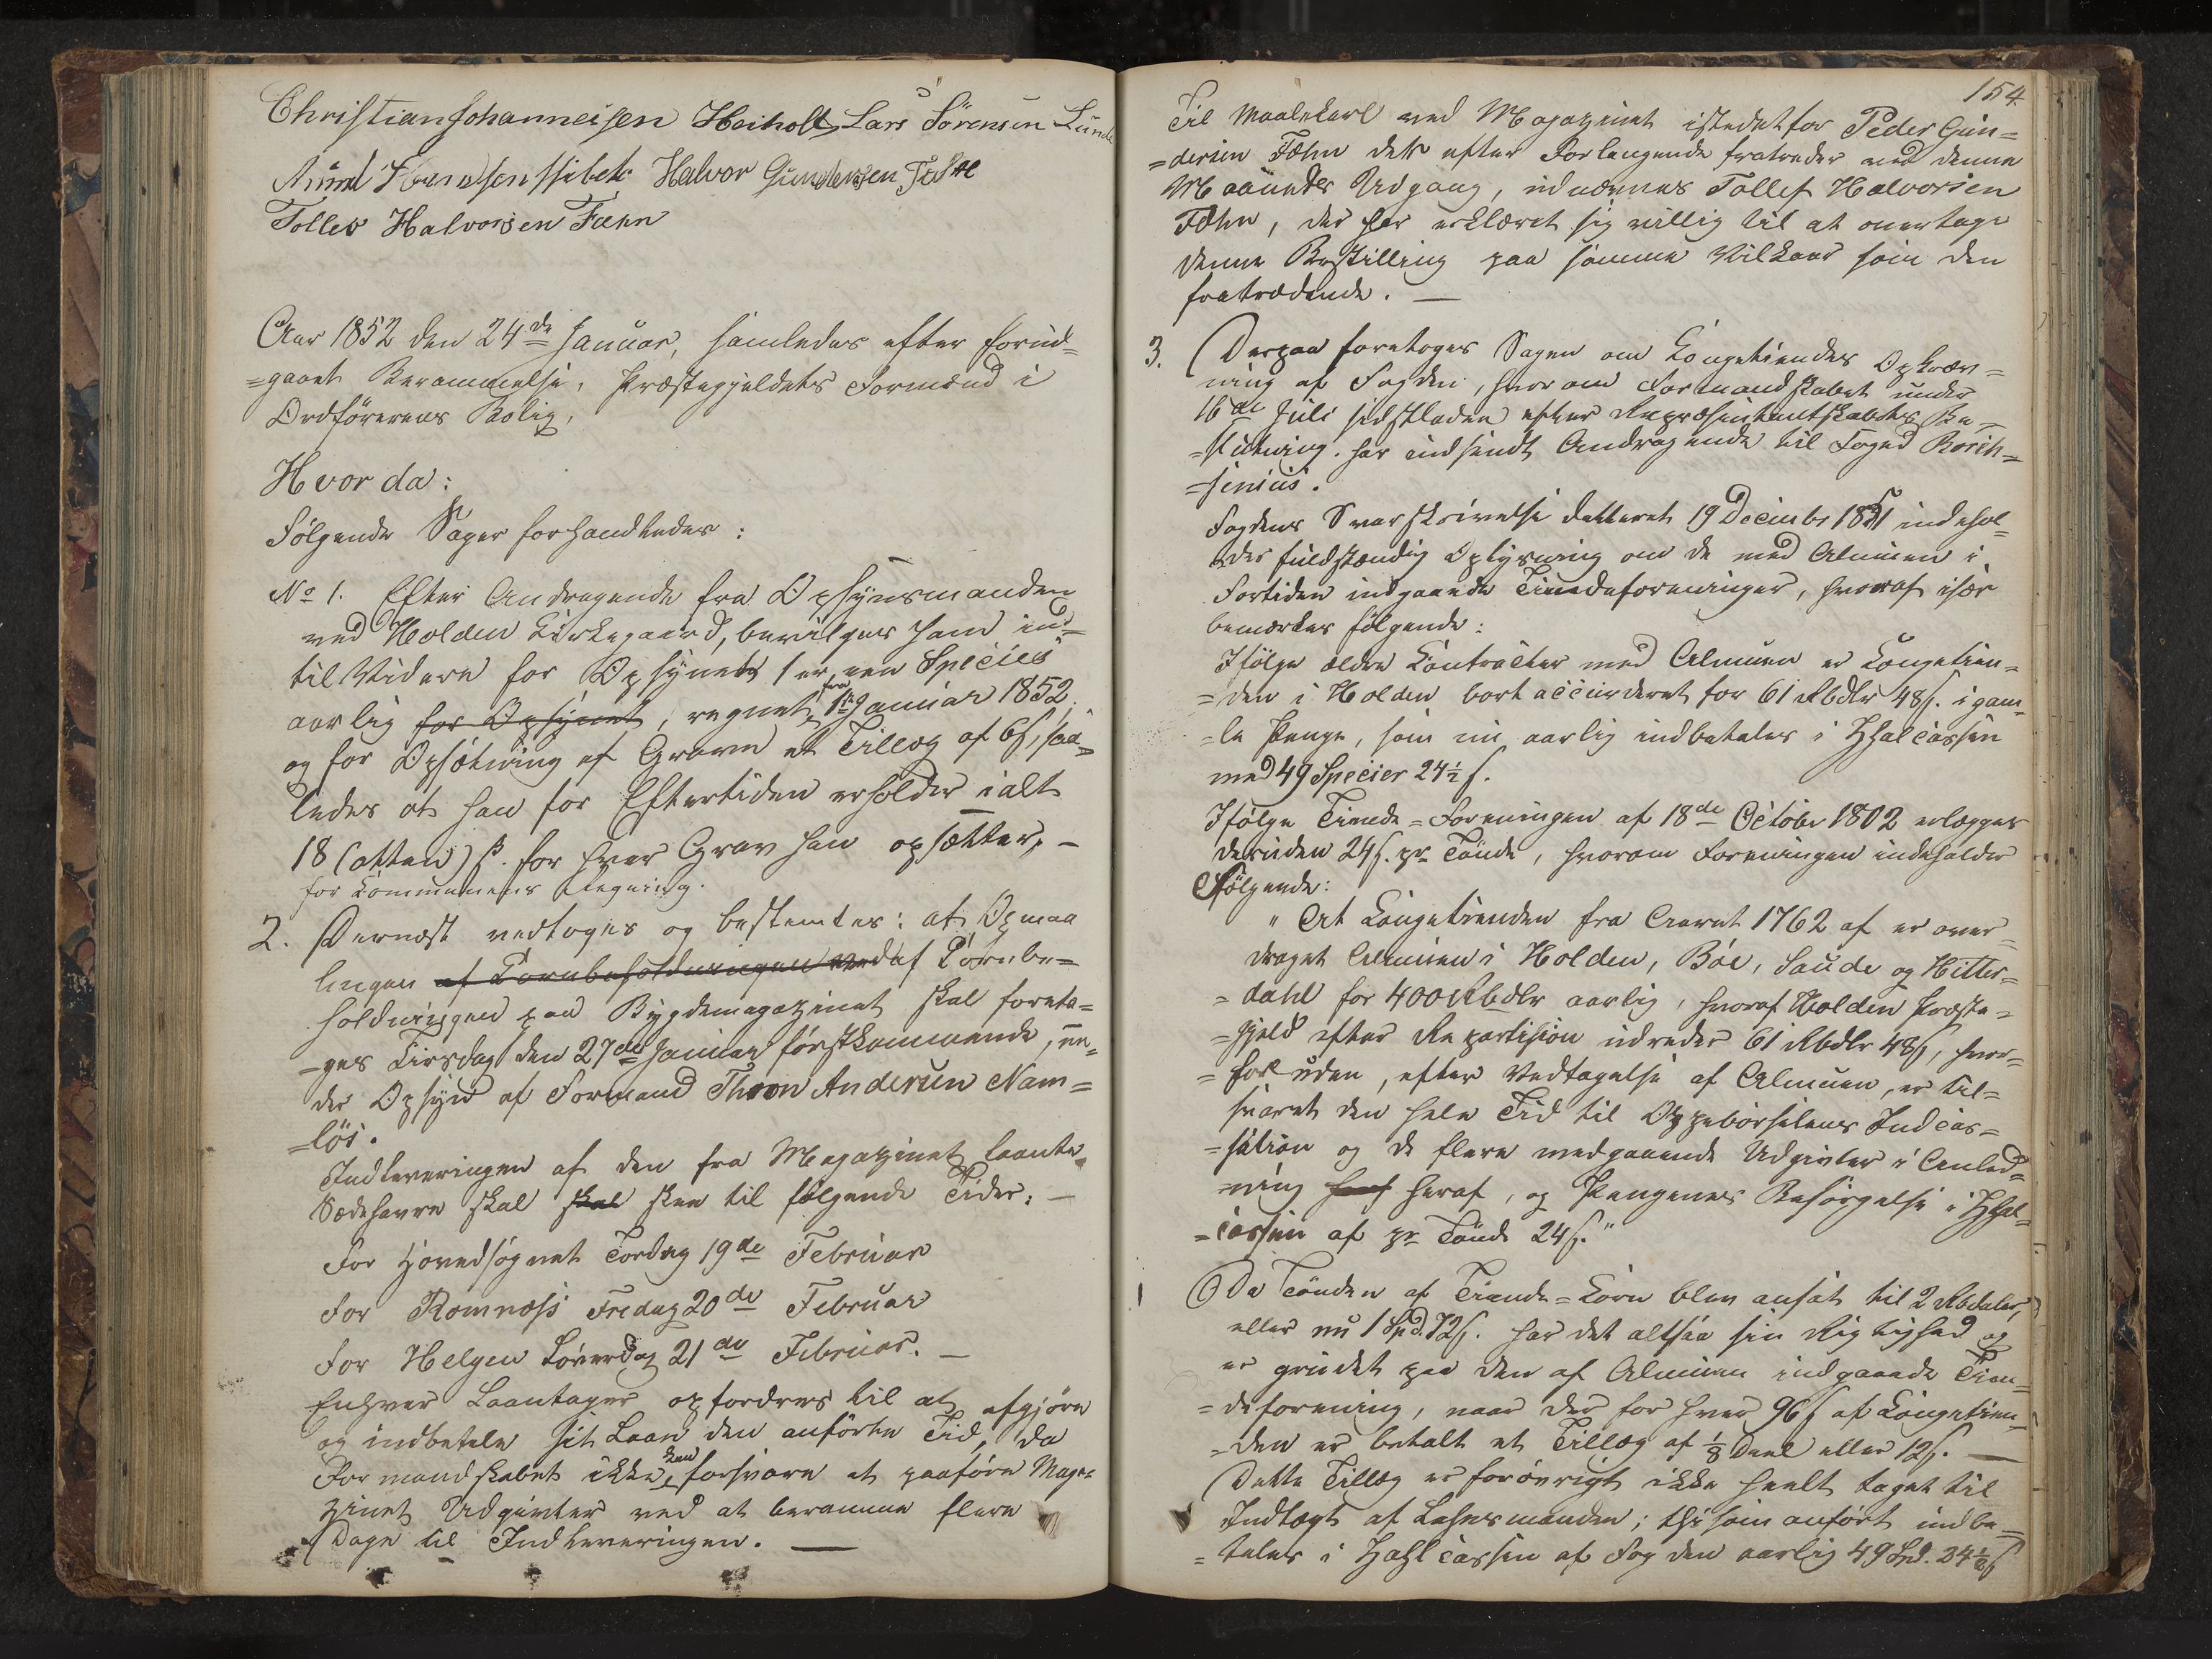 Christian Johannesen Heiholt Lars Sörensen Lunde
Halvor Gundersen Fæhn
Tollev Halvorsen Fæhn
Aar 1852 den 24de Januar, samledes efter forud=
=gaaet Berammelse, Præstegjeldets Formænd i
Ordförerens Bolig,
Hvor da:
Fölgende Sager forhandledes:
No 1. Efter Andragende fra Opsynsmanden
ved Holden Kirkegaard, bevilges ham ind=
til Videre for Opsynet 1 er, een Species
aarlig for Opsynet, regnet fra 1ste Januar 1852,
og for Opsætning af Gravene et Tillæg af 6 ß, saa=
ledes at han for Eftertiden erholder ialt
18 (atten) ß. for hver Grav han opsætter, –
for Kommunens Regning.
2. Dernæst vedtoges og bestemtes: at Opmaa
lingen af Kornbeholdningen ved af Kornbe=
holdningen paa Bygdemagazinet skal foreta=
=ges Tirsdag den 27de Januar förstkommende, un=
der Opsyn af Formand Thron Andersen Nam=
=lös.
Indleveringen af den fra Magazinet laante
Sædehavre skal skal skee til fölgende Tider: –
For Hovedsognet Torsdag 19de Februar
for Romnæss Fredag 20de Februar
for Helgen Löverdag 21de Februar. –
Enhver Laantager opfordres til at afgjöre
og indbetale sit Laan den anförte Tid, da
Formandskabet ikke kan forsvare at paaföre Maga=
zinet Udgivter ved at beramme flere
Dage til Indleveringen. –
154.
Til Maalekarl ved Magazinet istedetfor Peder Gun=
=dersen Fæhn der efter Forlangende fratræder ved denne
Maaneds Udgang, udnævnes Tollef Halvorsen
Fæhn, der har erklæret sig villig til at overtage
denne Bestilling paa samme Vilkaar som den
fratrædende. –
3. Derpaa foretoges Sagen om Kongetiendes Opkræv=
ning af Fogden, hvorom Formandskabet under
16de Juli sidstleden efter Repræsentantskabets Be=
=slutning har indsendt Andragende til Foged Rosen=
=senius.
Fogdens Svarskrivelse datteret 19 Decembr 1851 indehol=
der fuldstændig Oplysning om de med Almuen i
Fortiden indgaaede Tiendeforeninger, hvoraf især
bemærkes fölgende:
Ifölge ældre Kontracter med Almuen er Kongetien=
=den i Holden bortaccorderet for 61 Rbdlr 48 ß. i gam=
=le Penge, som nu aarlig indbetales i Zhalcassen
med 49 Species 24½ ß.
Ifölge Tiende=Foreningen af 18de Octobr 1802 erlægges
desuden 24 ß. pr Tönde, hvorom Foreningen indeholder
Fölgende:
" At Kongetienden fra Aaret 1762 af er over=
draget Almuen i Holden, Böe, Saude og Hitter=
=dahl for 400 Rbdlr aarlig, hvoraf Holden Præste=
=gjeld efter Repartision udreder 61 Rbdlr 48 ß, hvor=
=foruden, efter Vedtagelse af Almuen, er til=
svaret den hele Tid til Oppebörselens Indcas=
=sation og de flere medgaaende Udgivter i Anled=
=ning heraf, og Pengenes Besörgelse i Zhal=
=cassen af pr Tönde 24 ß."
Da Tönden af Tiende=Korn blev ansat til 2 Rbdaler,
eller nu 1 Spd. 72 ß. har det altsaa sin Rigtighed og
er grundet paa den af Almuen indgaaede Tien=
=deforening, naar der for hver 96 ß af Kongetien=
=den er betalt et Tillæg af ⅛ Deel eller 12 ß. –
Dette Tillæg er foröwrigt ikke heelt taget til
Indtægt af Lehnsmanden; thi som anfört indbe=
=tales i Zahlcassen af Fogden aarlig 49 Spd. 24½ ß